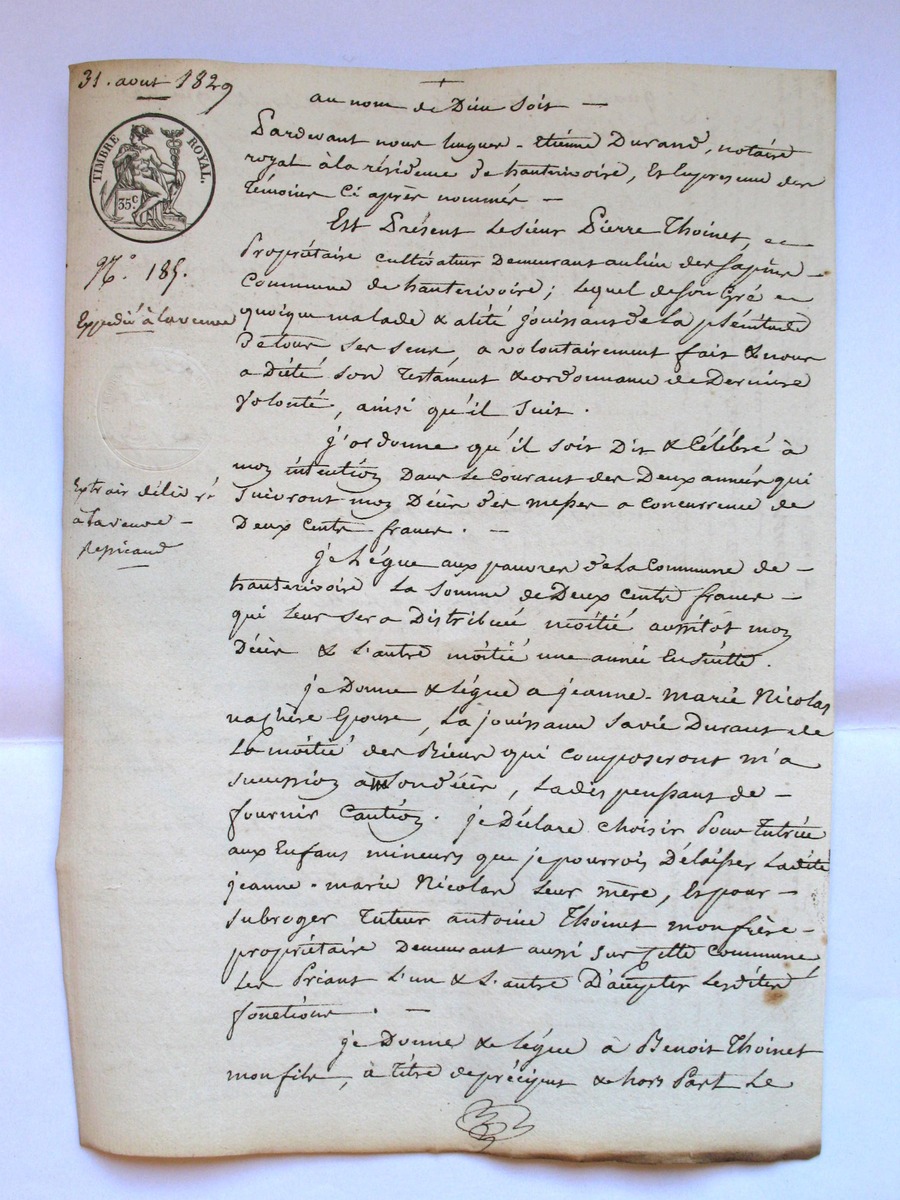 31. aout 1829
au nom de Dieu soit —
Pardevant nous hugues-etiénne Durand, notaire
royal à la résidence de hauterivoire, Et En presence des
témoins Ci après nommés —
TIMBRE ROYAL.
35c
Est Présent Le sieur Pierre Thoinet,
Propriétaire cultivateur Demeurant au lieu des sapins —
N.° 185.
Commune de hauterivoire; Lequel de son Gré et
Expédié à la veuve
quoique malade & alité jouissant de La plénitude
De tous ses sens, a volontairement fait & nous
a Dicté son Testament & ordonnance de Derniere
volonté, ainsi qu'il suit.
j'ordonne qu'il soit Dit & Célébré à
mon intention Dans Le Courant des Deux années qui
Extrait délivré
suivront mon Décès des messes a concurrence de
à la veuve —
Deux cents francs. —
je Lègue aux pauvres de La Commune de —
hauterivoire La somme de Deux Cents francs —
qui Leur sera Distribué moitié aussitôt mon
Décès & L'autre moitié une année Ensuitte.
je Donne & Lègue a jeanne-marie Nicolas
ma chère Epouse, La jouissance sa vie Durant de
La moitié des Biens qui composeront m'a
succession a mon décès, La dispensant de —
fournir Caution. je Déclare choisir Pour tutrice
aux Enfans mineurs que je pourrois Délaisser Ladite
jeanne-marie Nicolas Leur mère, Et pour —
subroger tuteur antoine Thoinet mon frère —
propriétaire Demeurant aussi sur cette Commune
Les Priant L'un & L'autre D'accepter Lesdites
fonctions. —
je Donne & Lègue à Benoit Thoinet
mon fils, à titre de préciput & hors Part Le